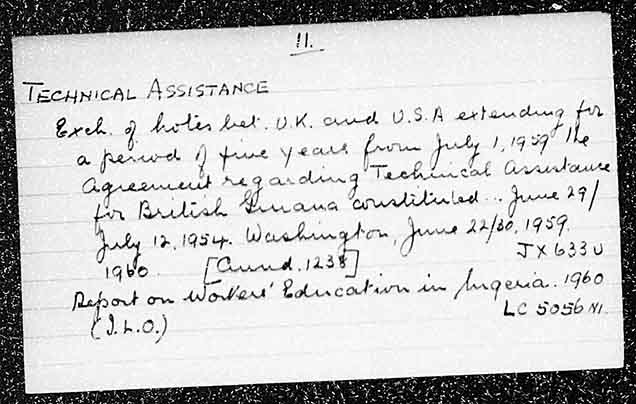 11.
TECHNICAL ASSISTANCE
Exch. of notes bet. U.K. and U.S.A extending for
a period of five years from July 1, 1959 the
agreement regarding Technical Assistance
for British Guiana constituted... June 29/
July 12, 1954. Washington, June 22/30, 1959.
1960. [Cmnd. 1238] JX633U
Report on Workers' Education in Nigeria. 1960
(I.L.O.) LC 5056 NI.